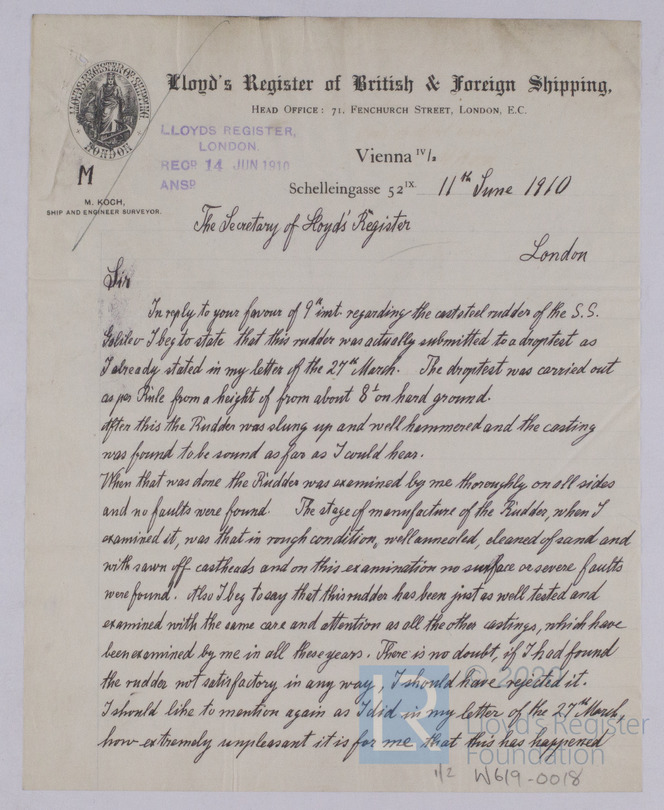 Lloyd's Register of British & Foreign Shipping,
HEAD OFFICE: 71, FENCHURCH STREET, LONDON, E.C.
LLOYD'S REGISTER OF SHIPPING
LONDON
LLOYDS REGISTER,
LONDON.
RECD 14 JUN 1910
ANSD
Vienna IV/2
Schelleingasse 52 IX. 11th June 1910
M
M. KOCH,
SHIP AND ENGINEER SURVEYOR.
The Secretary of Lloyd's Register
London
Sir
In reply to your favour of 9th inst. regarding the caststeel rudder of the S.S.
Galileo I beg to state that this rudder was actually submitted to a droptest as
I already stated in my letter of the 27th March. The droptest was carried out
as per Rule from a height of from about 8f on hard ground.
After this the Rudder was slung up and well hammered and the casting
was found to be sound as far as I could hear.
When that was done the Rudder was examined by me thoroughly on all sides
and no faults were found. The stage of manufacture of the Rudder, when I
examined it, was that in rough condition, well annealed, cleaned of sand and
with sawn off castheads and on this examination no surface or severe faults
were found. Also I beg to say that this rudder has been just as well tested and
examined with the same care and attention as all the other castings, which have
been examined by me in all these years. There is no doubt, if I had found
the rudder not satisfactory in any way, I should have rejected it.
I should like to mention again as I did in my letter of the 27th March,
how extremely unpleasant it is for me that this has happened
LR
© 2020
Lloyd's Register
Foundation
1/2 W619-0018